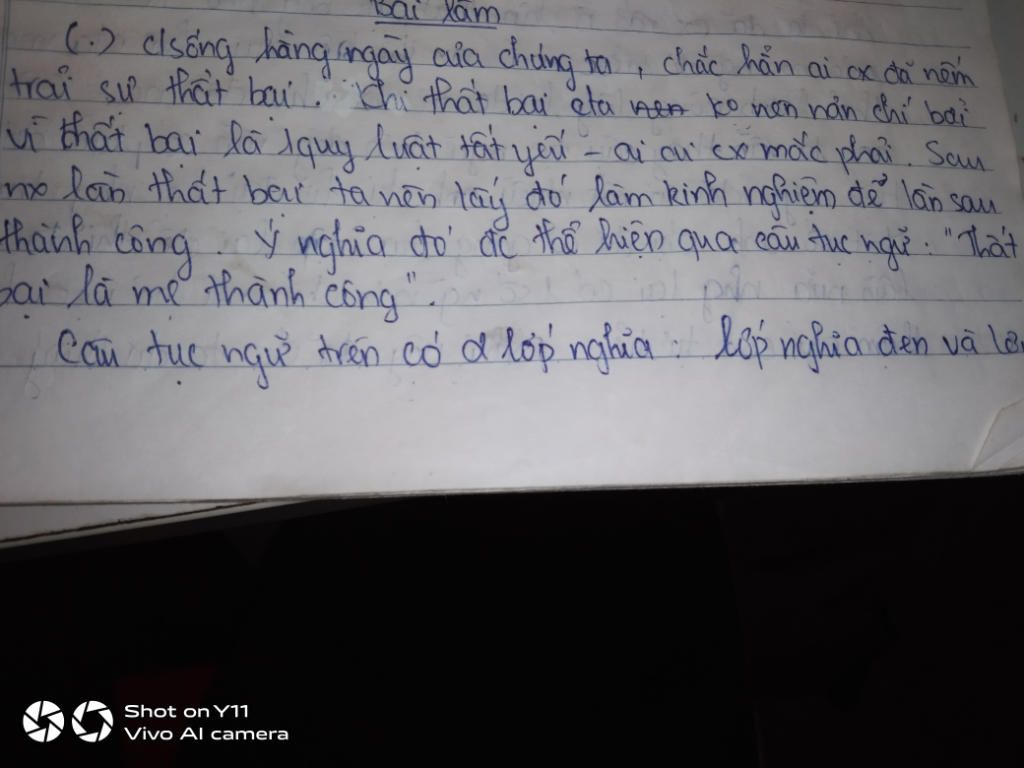 Bài làm
(.) c/sống hằng ngày của chúng ta, chắc hẳn ai cx đã nếm
trải sự thất bại. Khi thất bại cta nen ko nen nản chí bởi
vì thất bại là 1 quy luật tất yếu - ai cũ cx mắc phải. Sau
mx lần thất bại ta nên lấy đó làm kinh nghiệm để lần sau
thành công. Ý nghĩa đó đc thể hiện qua câu tục ngữ: "Thất
bại là mẹ thành công".
Câu tục ngữ trên có 2 lớp nghĩa: lớp nghĩa đen và
Shot on Y11
Vivo AI camera